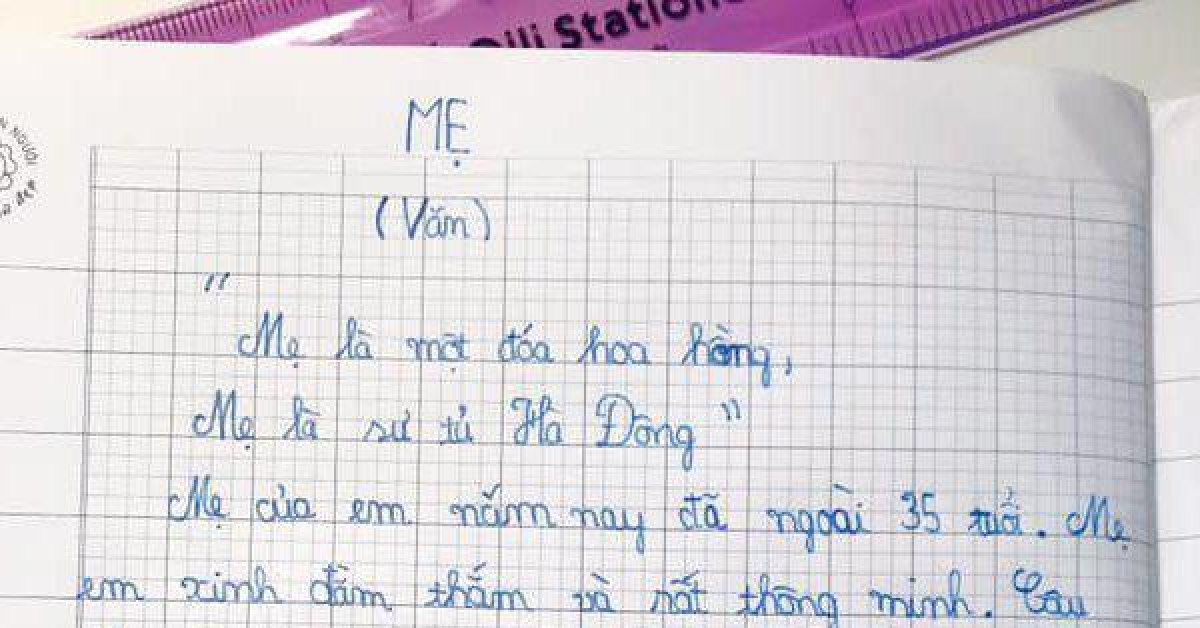 MẸ
NGƯỜI
(Văn)
ĐẸP
"
Mẹ là một đóa hoa hồng,
Mẹ là sư tử Hà Đông"
Mẹ của em năm nay đã ngoài 35 tuổi. Mẹ
em xinh đằm thắm và rất thông minh. Câu